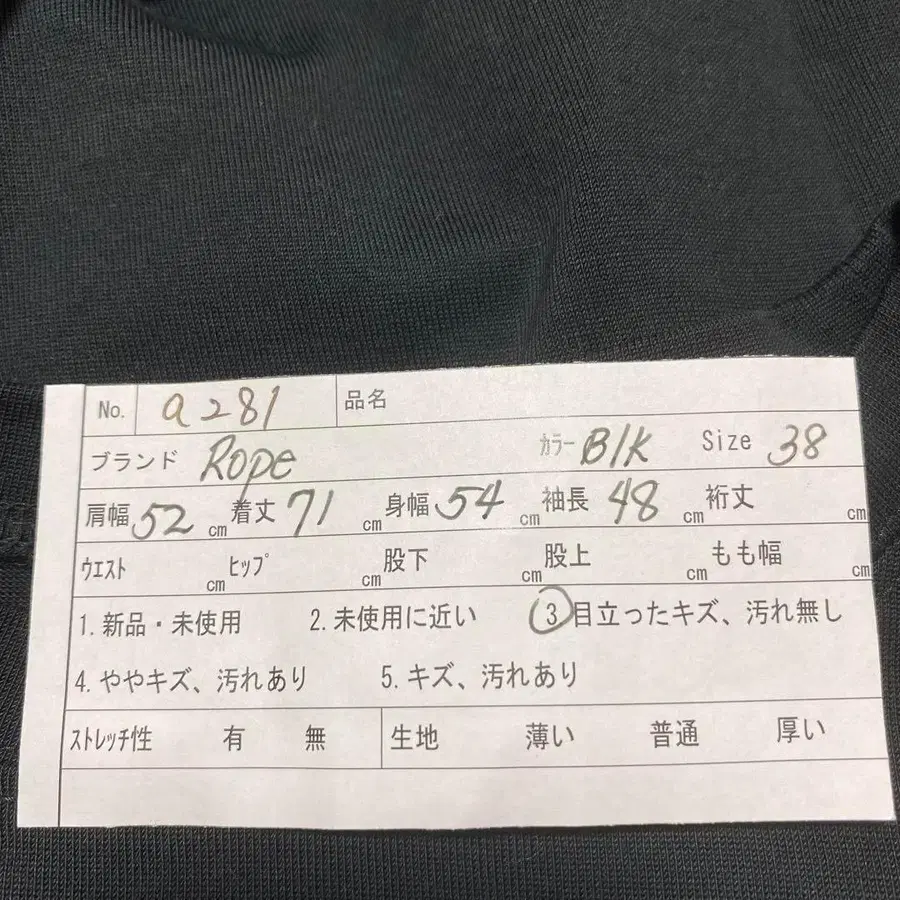 No. a281 品名
ブランド Rope カラー Blk Size 38
肩幅 52 cm 着丈 71 cm 身幅 54 cm 袖長 48 cm 裄丈 cm
ウエスト cm ヒップ cm 股下 cm 股上 cm もも幅 cm
1. 新品・未使用 2. 未使用に近い 3 目立ったキズ、汚れ無し
4. ややキズ、汚れあり 5. キズ、汚れあり
ストレッチ性 有 無 生地 薄い 普通 厚い